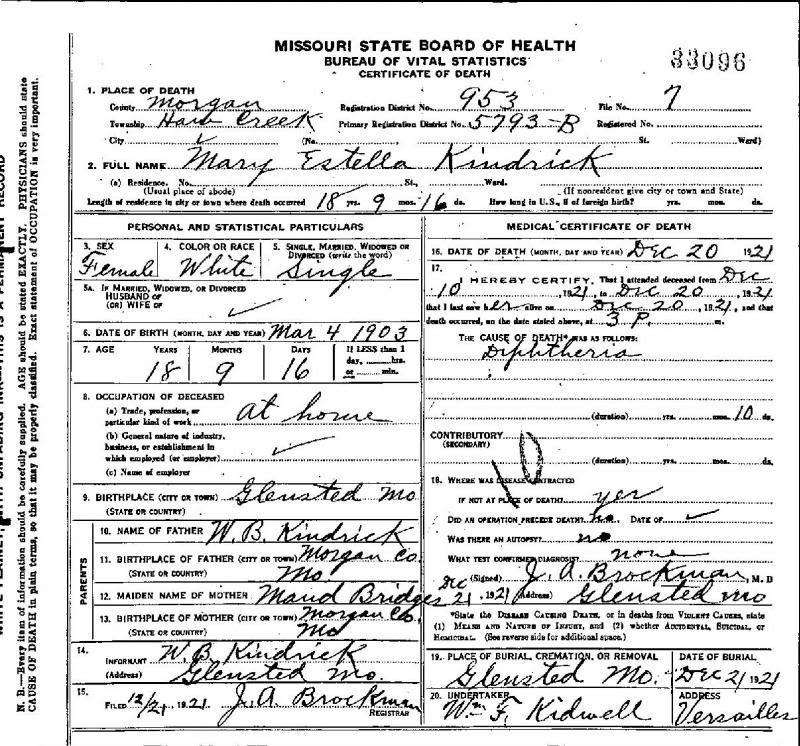 MISSOURI STATE BOARD OF HEALTH
BUREAU OF VITAL STATISTICS
CERTIFICATE OF DEATH
33096
1. PLACE OF DEATH
County Morgan Registration District No. 953 File No. 7
Township Haw Creek Primary Registration District No. 5793-B Registered No.
City (No. St. Ward)
2. FULL NAME Mary Estella Kindrick
(a) Residence. No. St., Ward.
(Usual place of abode) (If nonresident give city or town and State)
Length of residence in city or town where death occurred 18 yrs. 9 mos. 16 ds. How long in U.S., if of foreign birth? yrs. mos. ds.
PERSONAL AND STATISTICAL PARTICULARS
3. SEX
Female
4. COLOR OR RACE
White
5. SINGLE, MARRIED, WIDOWED OR
DIVORCED (write the word)
Single
5A. IF MARRIED, WIDOWED, OR DIVORCED
HUSBAND OF
(OR) WIFE OF
6. DATE OF BIRTH (MONTH, DAY AND YEAR) Mar 4 1903
7. AGE YEARS MONTHS DAYS If LESS than 1
day, hrs.
or min.
18 9 16
8. OCCUPATION OF DECEASED
(a) Trade, profession, or
particular kind of work at home
(b) General nature of industry,
business, or establishment in
which employed (or employer)
(c) Name of employer
9. BIRTHPLACE (CITY OR TOWN) Glensted Mo
(STATE OR COUNTRY)
PARENTS
10. NAME OF FATHER W. B. Kindrick
11. BIRTHPLACE OF FATHER (CITY OR TOWN) Morgan Co.
(STATE OR COUNTRY) Mo
12. MAIDEN NAME OF MOTHER Maud Bridges
13. BIRTHPLACE OF MOTHER (CITY OR TOWN) Morgan Co.
(STATE OR COUNTRY) Mo
14.
INFORMANT W. B. Kindrick
(Address) Glensted Mo.
15.
FILED 12/21, 1921 J. A. Brockman
REGISTRAR
MEDICAL CERTIFICATE OF DEATH
16. DATE OF DEATH (MONTH, DAY AND YEAR) Dec 20 1921
17.
I HEREBY CERTIFY, That I attended deceased from Dec
10, 1921, to Dec 20, 1921
that I last saw her alive on Dec 20, 1921, and that
death occurred, on the date stated above, at 3 P. m.
THE CAUSE OF DEATH* WAS AS FOLLOWS:
Diphtheria
(duration) yrs. mos. 10 ds.
CONTRIBUTORY
(SECONDARY)
(duration) yrs. mos. ds.
18. WHERE WAS DISEASE CONTRACTED
IF NOT AT PLACE OF DEATH? yes
DID AN OPERATION PRECEDE DEATH? no DATE OF
WAS THERE AN AUTOPSY? no
WHAT TEST CONFIRMED DIAGNOSIS? none
(Signed) J. A. Brockman, M. D
Dec 21, 1921 (Address) Glensted Mo
*State the DISEASE CAUSING DEATH, or in deaths from VIOLENT CAUSES, state
(1) MEANS AND NATURE OF INJURY, and (2) whether ACCIDENTAL, SUICIDAL, or
HOMICIDAL. (See reverse side for additional space.)
19. PLACE OF BURIAL, CREMATION, OR REMOVAL DATE OF BURIAL
Glensted Mo. Dec 21 1921
20. UNDERTAKER ADDRESS
Wm F. Kidwell Versailles
N. B.—Every item of information should be carefully supplied. AGE should be stated EXACTLY. PHYSICIANS should state
CAUSE OF DEATH in plain terms, so that it may be properly classified. Exact statement of OCCUPATION is very important.